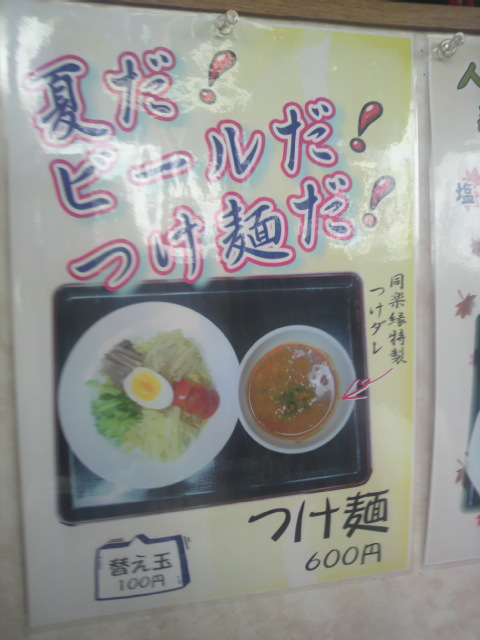 夏だ！
ビールだ！
つけ麺だ！
同楽縁特製
つけダレ
つけ麺
600円
替え玉
100円
人
塩